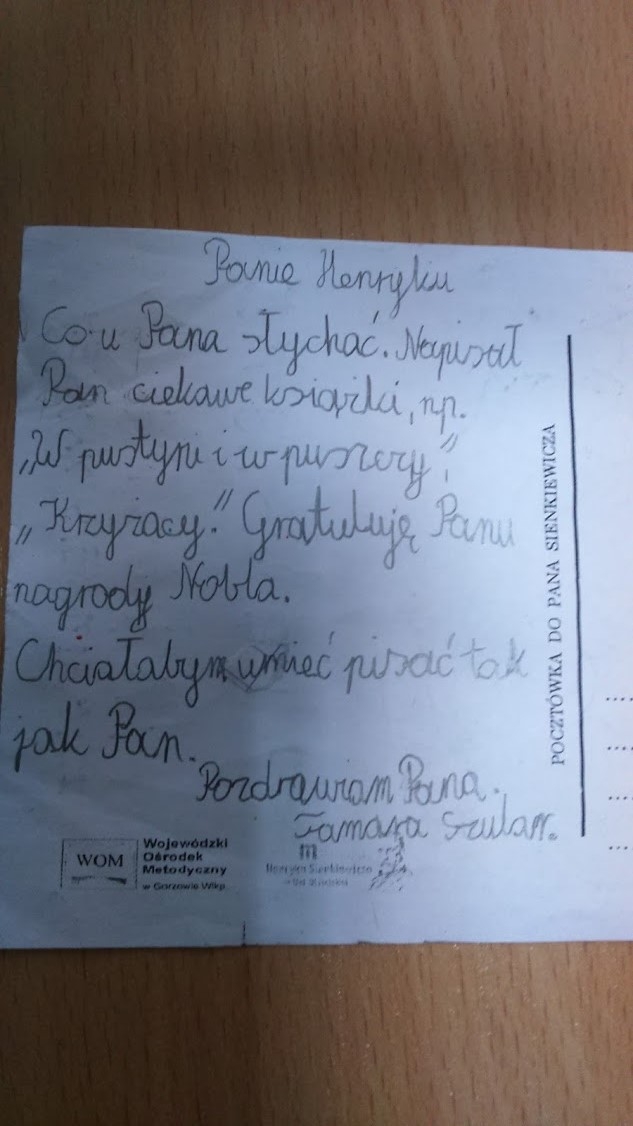 Panie Henryku
Co u Pana słychać. Napisał
Pan ciekawe książki, np.
„W pustyni i w puszczy",
„Krzyżacy." Gratuluję Panu
nagrody Nobla.
Chciałabym umieć pisać tak
jak Pan.
Pozdrawiam Pana.
Tamara
POCZTÓWKA DO PANA SIENKIEWICZA
WOM
Wojewódzki
Ośrodek
Metodyczny
w Gorzowie Wlkp.
m
Henryka Sienkiewicza